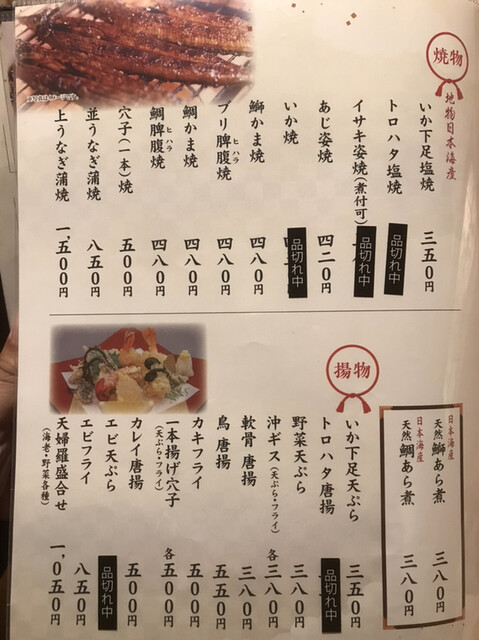 焼物
地物日本海産
いか下足塩焼 三五〇円
トロハタ塩焼 品切れ中
イサキ姿焼(煮付可) 品切れ中
あじ姿焼 四二〇円
いか焼 品切れ中 円
鰤かま焼 四八〇円
ブリ脾腹焼 ヒハラ 四八〇円
鯛かま焼 四八〇円
鯛脾腹焼 ヒハラ 四八〇円
穴子(一本)焼 五〇〇円
並うなぎ蒲焼 八五〇円
上うなぎ蒲焼 一、五〇〇円
※写真はイメージです。
日本海産
天然鰤あら煮 三八〇円
日本海産
天然鯛あら煮 三八〇円
揚物
いか下足天ぷら 三五〇円
トロハタ唐揚 品切れ中 円
野菜天ぷら 三八〇円
沖ギス(天ぷら・フライ) 各三八〇円
軟骨唐揚 三八〇円
鳥唐揚 五五〇円
カキフライ 五五〇円
一本揚げ穴子(天ぷら・フライ) 各五〇〇円
カレイ唐揚 五五〇円
エビ天ぷら 品切れ中
エビフライ 八五〇円
天婦羅盛合せ(海老・野菜各種) 一、〇五〇円